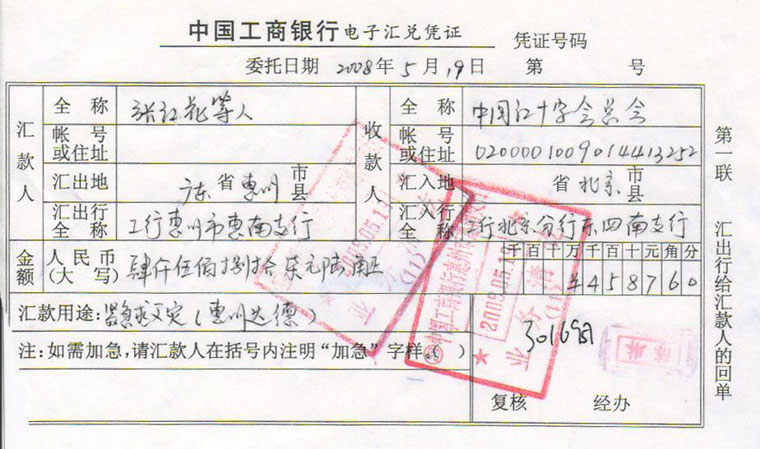 中国工商银行 电子汇兑凭证 凭证号码
委托日期 2008年5月19日 第 号
汇款人 全称 张红花等人 收款人 全称 中国红十字会总会
帐号或住址 帐号或住址 0200001009014413252
汇出地 广东省惠州市县 汇入地 省北京市县
汇出行全称 工行惠州市惠南支行 汇入行全称 工行北京分行东四南支行
金额 人民币(大写) 肆仟伍佰捌拾柒元陆角正 千百十万千百十元角分
¥458760
汇款用途: (惠州达德)
注:如需加急,请汇款人在括号内注明“加急”字样。( )
301689
复核 经办
第一联 汇出行给汇款人的回单
中国工商银行惠州
2008.05.19
业务
(11)